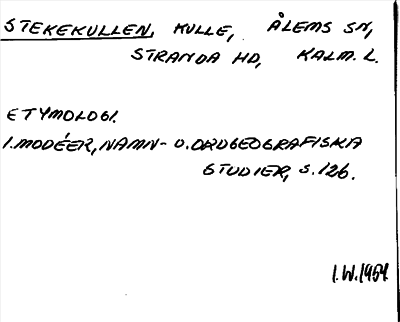 STEKEKULLEN, KULLE, ÅLEMS SN,
STRANDA HD, KALM. L.
ETYMOLOGI.
I. MODÉER, NAMN- O. ORDGEOGRAFISKA
STUDIER, S. 126.
I.W. 1954.